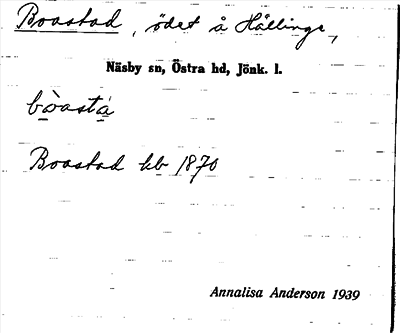 Boastad, ödet å Hällinge,
Näsby sn, Östra hd, Jönk. l.
bòasta
Boastad kb 1870
Annalisa Anderson 1939